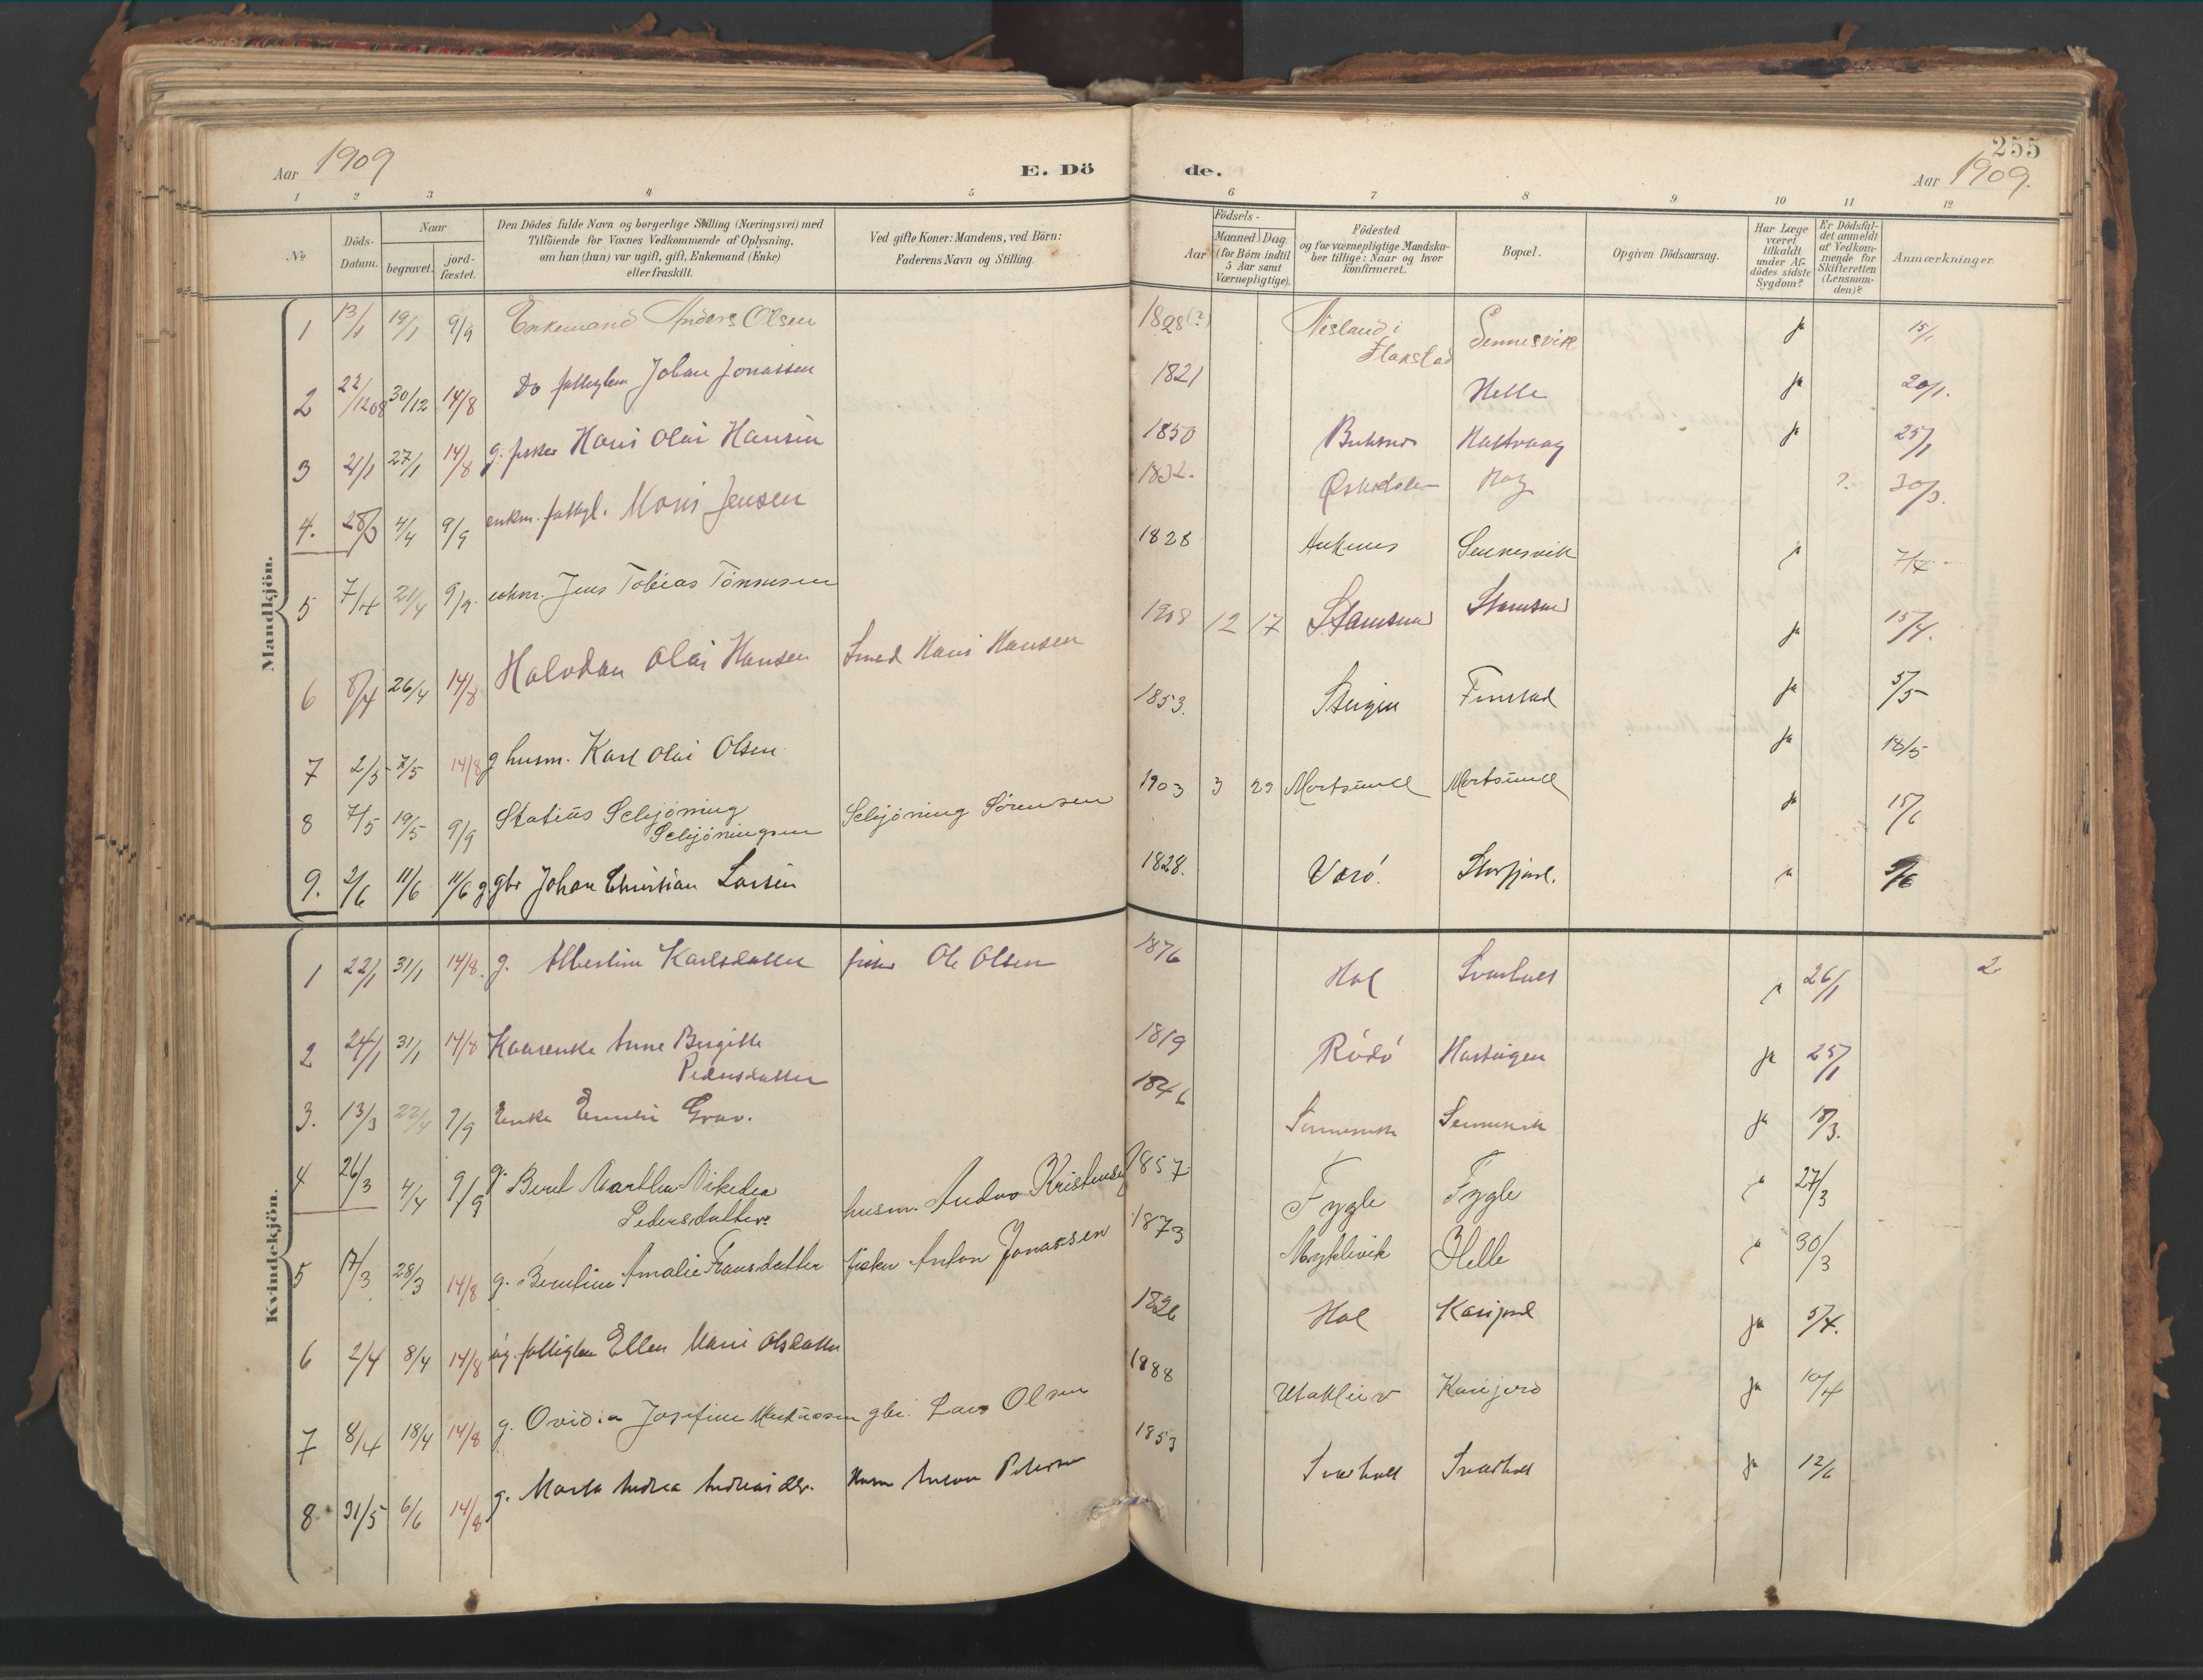 Aar 1909
E. Dö
de.
255
Aar 1909.
1 2 3 4 5 6 7 8 9 10 11 12
No
Döds-
Datum.
Naar
begravet.
jord-
fæstet.
Den Dödes fulde Navn og borgerlige Stilling (Næringsvei) med
Tilföiende for Voxnes Vedkommende af Oplysning,
om han (hun) var ugift, gift, Enkemand (Enke)
eller fraskilt.
Ved gifte Koner: Mandens, ved Börn:
Faderens Navn og Stilling.
Födsels-
Aar
Maaned Dag
(for Börn indtil
5 Aar samt
Værnepligtige).
Födested
og for værnepligtige Mandska-
ber tillige: Naar og hvor
konfirmeret.
Bopæl.
Opgiven Dödsaarsag.
Har Læge
været
tilkaldt
under Af-
dödes sidste
Sygdom?
Er Dödsfal-
det anmeldt
af Vedkom-
mende for
Skifteretten
(Lensman-
den)?
Anmærkninger.
Mandkjön.
1 13/1 19/1 9/9 Enkemand Anders Olsen 1828(?) Nesland i Flakstad Sennesvik ja 15/1
2 22/12 08 30/12 14/8 Do fattiglem Johan Jonassen 1821 Helle ja 20/1.
3 21/1 27/1 14/8 g. fisker Hans Olai Hansen 1850 Buksnes Hattvaag ja 25/1
4. 28/3 4/4 9/9 enkm. fattigl. Mons Jensen 1832. Hag ? 30/3.
5 7/4 21/4 9/9. enkm. Jens Tobias Tönnesen 1828 Sennesvik ja 7/4
6 8/4 26/4 14/8 Halvdan Olai Hansen Smed Hans Hansen 1908 12 17 Stamsund Stamsund ja 15/4.
7 2/5 7/5 14/8 g husm. Karl Olai Olsen 1853. Steigen Finstad ja 5/5
8 7/5 19/5 9/9 Statius Schjöning Schjöningsen Schjöning Sörensen 1903 3 29 Mortsund Mortsund ja 18/5
9. 2/6 11/6 11/6 g. gbr Johan Christian Larsen 1828. Værö. Storfjord. ja 15/6
ja 5/6
Kvindekjön.
1 22/1 31/1 14/8. g. Albertine Karlsdatter fisker Ole Olsen 1876 Hol Svarholt ja 26/1 2
2 24/1 31/1 14/8 Kaarenke Anne Birgitte Pedersdatter 1819 Rödö ja 25/1
3. 13/3 22/4 9/9 Enke Emilie Grav. 1846 Sennesvik Sennesvik ja 18/3.
4 26/3 4/4 9/9 g. Beret Martha Nikedea Pedersdatter. husm. Andor Kristensen 1857 Fygle Fygle ja 27/3
5 17/3 28/3 14/8 g. Berntine Amalie Fransdatter fisker Anton Jonassen 1873 Myklevik Helle ja 30/3
6 2/4 8/4 14/8 ug. fattiglem Ellen Marie Olsdatter 1826 Hol Karijord ja 5/4.
7 8/4 18/4 14/8 g. Ovidia Josefine Markussen gbr. Lars Olsen 1888 Utakleiv Karijord ja 10/4
8 31/5 6/6 14/8 g. Marta Andrea Andreasdtr. Husm Anton Petersen 1853 Svarholt Svarholt ja 12/6